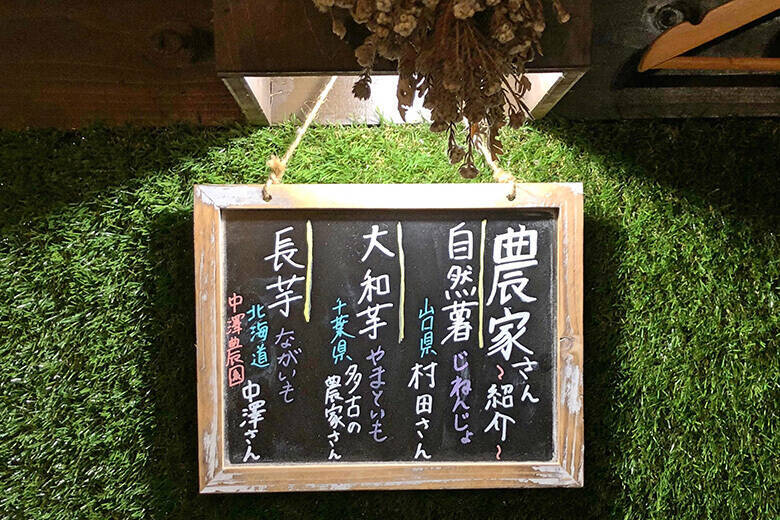 農家さん～紹介～
自然薯 じねんじょ
山口県 村田さん
大和芋 やまといも
千葉県 多古の
農家さん
長芋 ながいも
北海道 中澤さん
中澤農園